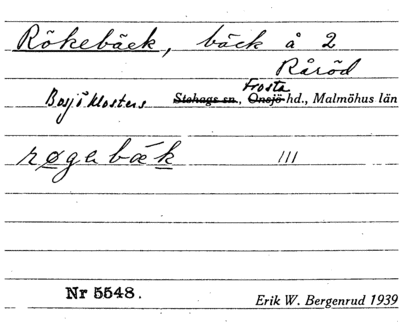 Rökebäck, bäck å 2
Råröd
Frosta
Bosjöklosters Stehags sn., Onsjö hd., Malmöhus län
røgabæk III
Nr 5548.
Erik W. Bergenrud 1939